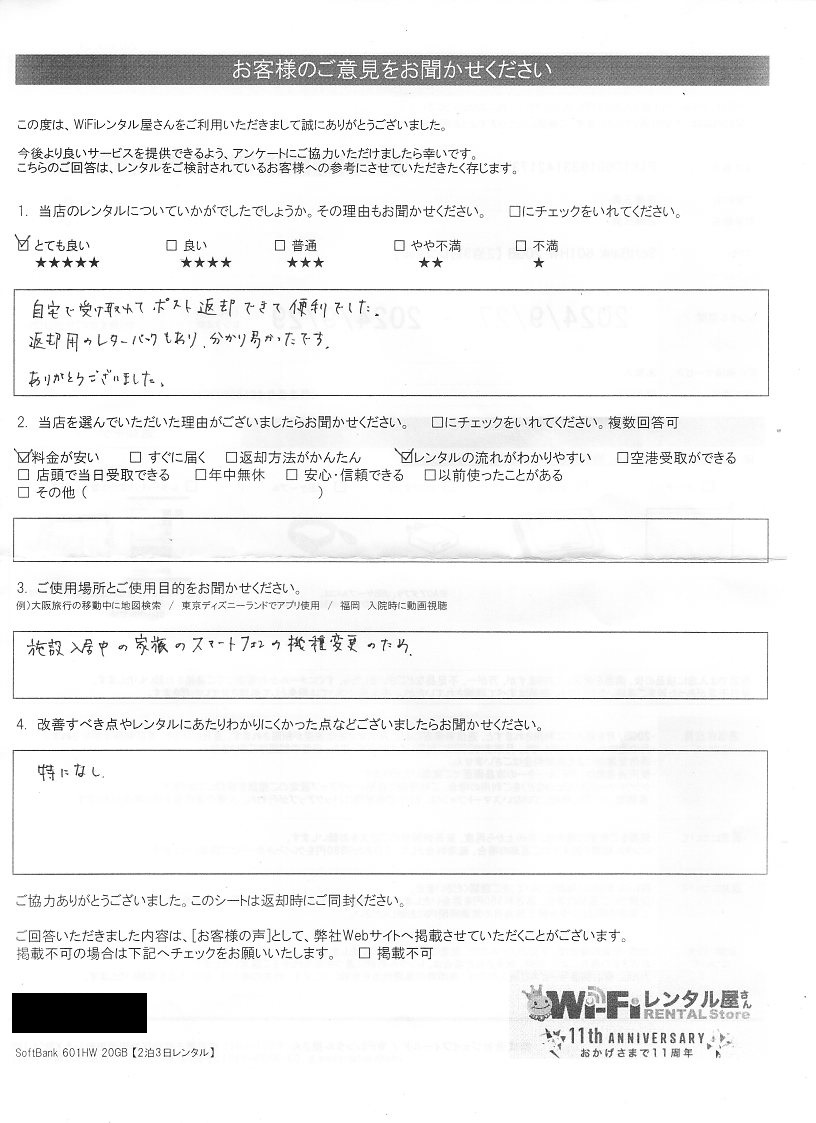 お客様のご意見をお聞かせください
この度は、WiFiレンタル屋さんをご利用いただきまして誠にありがとうございました。
今後より良いサービスを提供できるよう、アンケートにご協力いただけましたら幸いです。
こちらのご回答は、レンタルをご検討されているお客様への参考にさせていただきたく存じます。
1. 当店のレンタルについていかがでしたでしょうか。その理由もお聞かせください。 □にチェックをいれてください。
☑ とても良い □ 良い □ 普通 □ やや不満 □ 不満
★★★★★ ★★★★ ★★★ ★★ ★
自宅で受け取れてポスト返却できて便利でした。
返却用のレターパックもあり、分かり易かったです。
ありがとうございました。
2. 当店を選んでいただいた理由がございましたらお聞かせください。 □にチェックをいれてください。複数回答可
☑料金が安い □ すぐに届く □返却方法がかんたん ☑レンタルの流れがわかりやすい □空港受取ができる
□ 店頭で当日受取できる □年中無休 □ 安心・信頼できる □以前使ったことがある
□ その他 ( )
3. ご使用場所とご使用目的をお聞かせください。
例)大阪旅行の移動中に地図検索 / 東京ディズニーランドでアプリ使用 / 福岡 入院時に動画視聴
施設入居中の家族のスマートフォンの機種変更のため。
4. 改善すべき点やレンタルにあたりわかりにくかった点などございましたらお聞かせください。
特になし。
ご協力ありがとうございました。このシートは返却時にご同封ください。
ご回答いただきました内容は、[お客様の声]として、弊社Webサイトへ掲載させていただくことがございます。
掲載不可の場合は下記へチェックをお願いいたします。 □ 掲載不可
Wi-Fiレンタル屋さん
RENTAL Store
11th ANNIVERSARY
おかげさまで11周年
SoftBank 601HW 20GB【2泊3日レンタル】